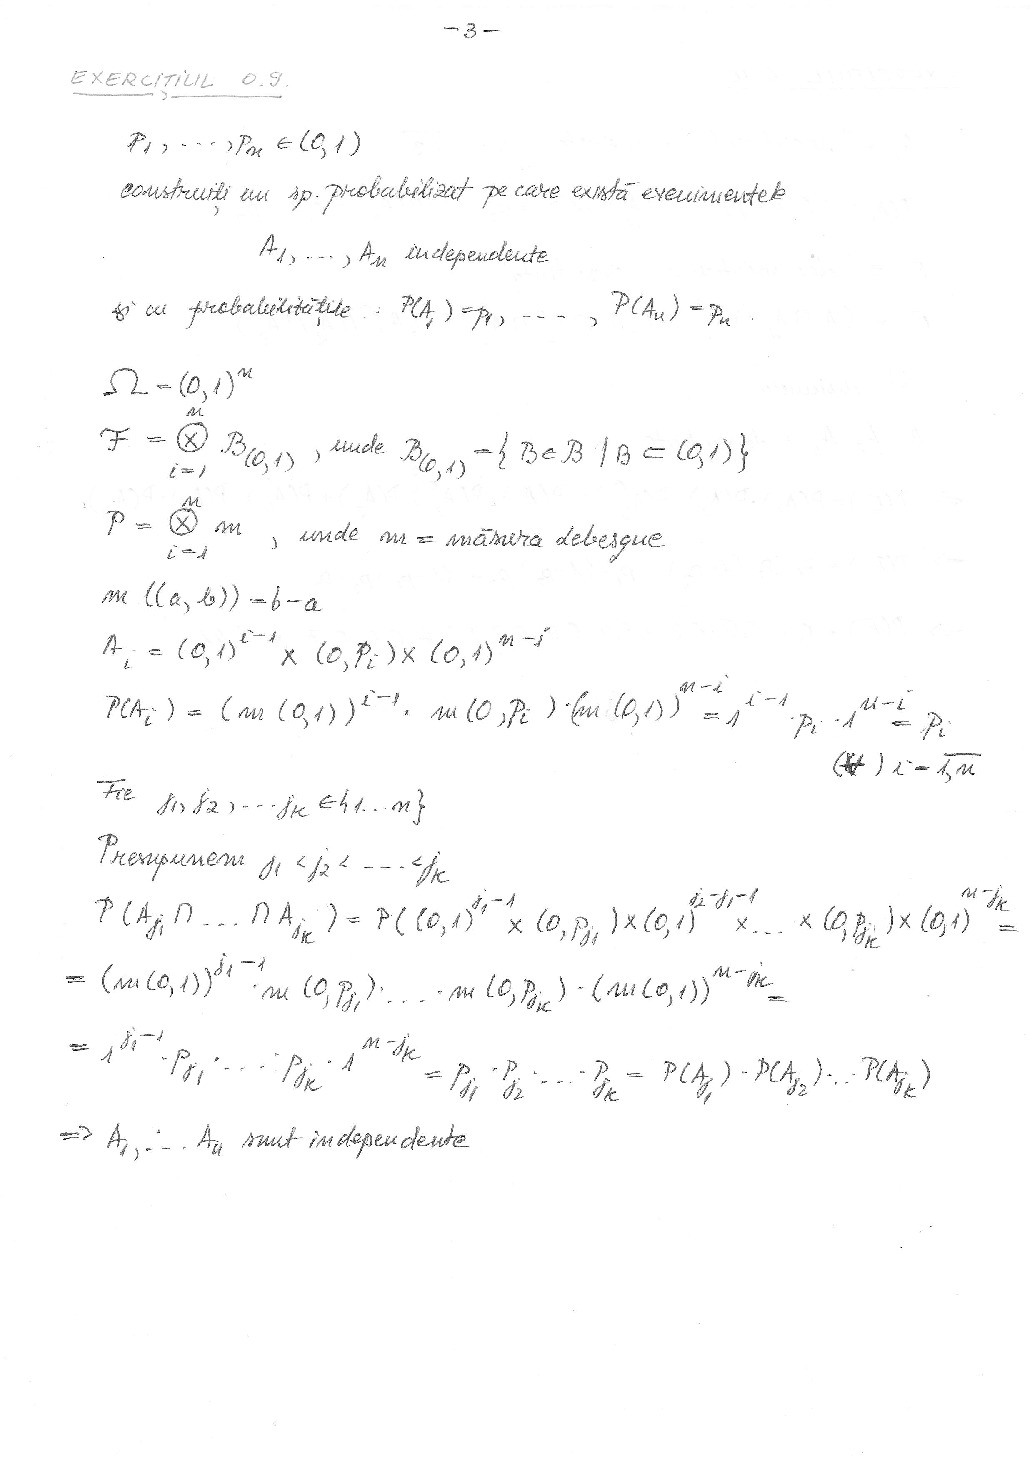 -3-
EXERCIȚIUL 0.9.
p₁, ..., pₙ ∈ (0,1)
construiți un sp. probabilizat pe care există evenimentele
A₁, ..., Aₙ independente
și cu probabilitățile : P(A₁)=p₁, ...., P(Aₙ)=pₙ.
Ω = (0,1)ⁿ
F = ⊗_{i=1}^{n} B_{(0,1)}, unde B_{(0,1)} = {B∈B | B ⊂ (0,1)}
P = ⊗_{i=1}^{n} m, unde m = măsura Lebesgue
m((a,b)) = b-a
A_i = (0,1)^{i-1} × (0,p_i) × (0,1)^{n-i}
P(A_i) = (m(0,1))^{i-1} · m(0,p_i) · (m(0,1))^{n-i} = 1^{i-1} · p_i · 1^{n-i} = p_i
(∀) i = \overline{1,n}
Fie j₁, j₂, ... j_k ∈ {1...n}
Presupunem j₁ < j₂ < .... < j_k
P(A_{j₁} ∩ ... ∩ A_{j_k}) = P((0,1)^{j₁-1} × (0,p_{j₁}) × (0,1)^{j₂-j₁-1} × ... × (0,p_{j_k}) × (0,1)^{n-j_k} =
= (m(0,1))^{j₁-1} · m(0,p_{j₁}) · ... · m(0,p_{j_k}) · (m(0,1))^{n-j_k} =
= 1^{j₁-1} · p_{j₁} · ... · p_{j_k} · 1^{n-j_k} = p_{j₁} · p_{j₂} · ... · p_{j_k} = P(A_{j₁}) · P(A_{j₂}) ... P(A_{j_k})
=> A₁, ... Aₙ sunt independente